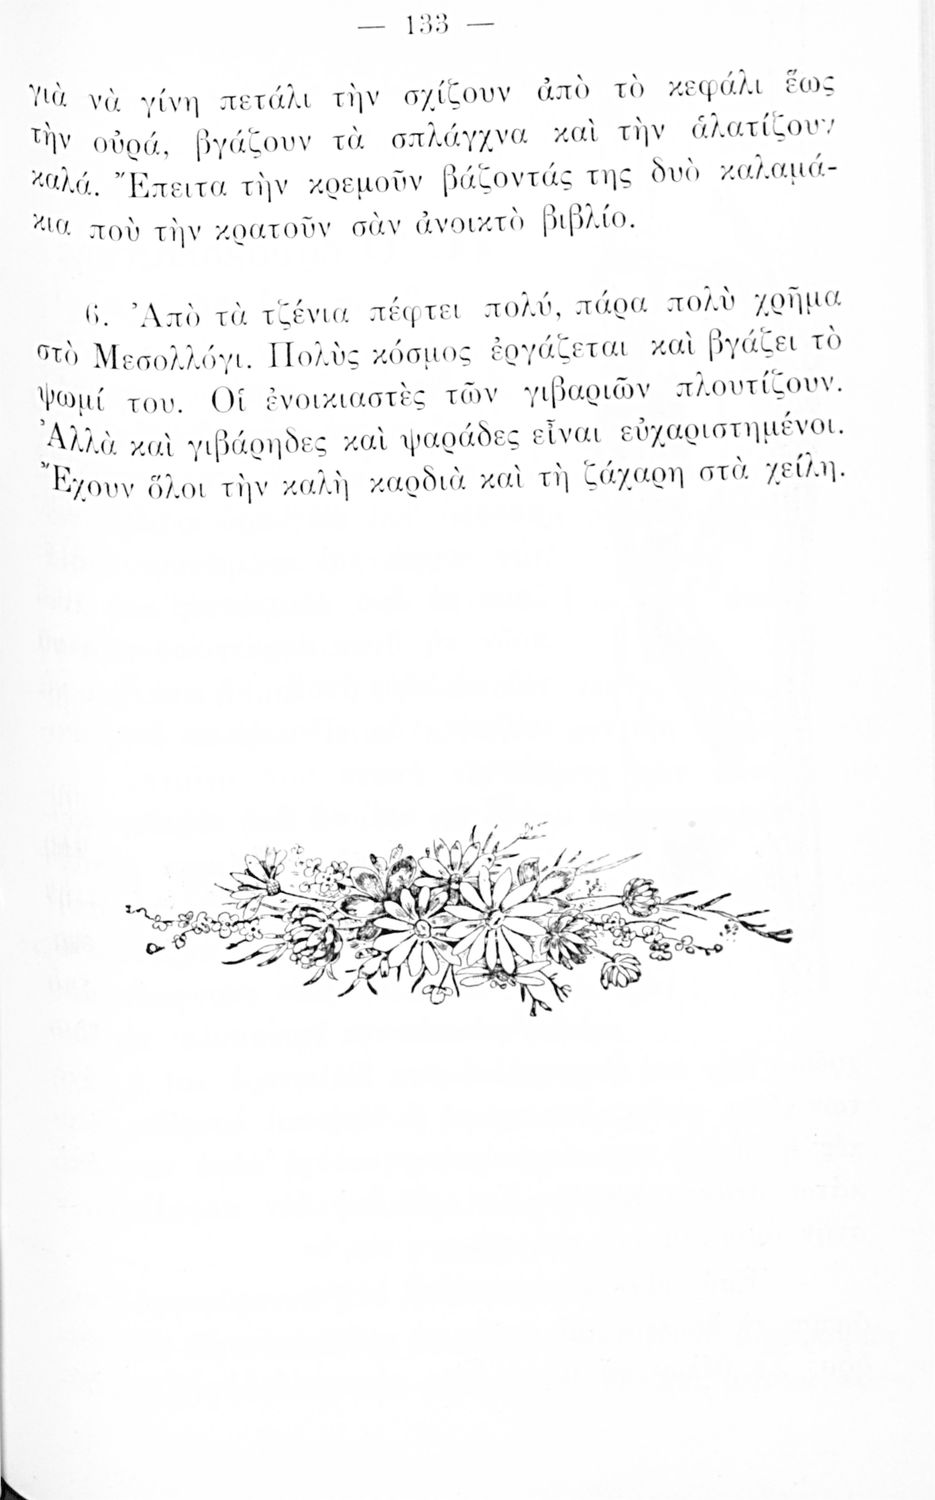 — 133 —
γιὰ νὰ γίνη πετάλι τὴν σχίζουν ἀπὸ τὸ κεφάλι ἕως
τὴν οὐρά, βγάζουν τὰ σπλάγχνα καὶ τὴν ἁλατίζουν
καλά. Ἔπειτα τὴν κρεμοῦν βάζοντάς της δυὸ καλαμά-
κια ποὺ τὴν κρατοῦν σὰν ἀνοικτὸ βιβλίο.
6. Ἀπὸ τὰ τζένια πέφτει πολύ, πάρα πολὺ χρῆμα
στὸ Μεσολλόγι. Πολὺς κόσμος ἐργάζεται καὶ βγάζει τὸ
ψωμί του. Οἱ ἐνοικιαστὲς τῶν γιβαριῶν πλουτίζουν.
Ἀλλὰ καὶ γιβάρηδες καὶ ψαράδες εἶναι εὐχαριστημένοι.
Ἔχουν ὅλοι τὴν καλὴ καρδιὰ καὶ τὴ ζάχαρη στὰ χείλη.